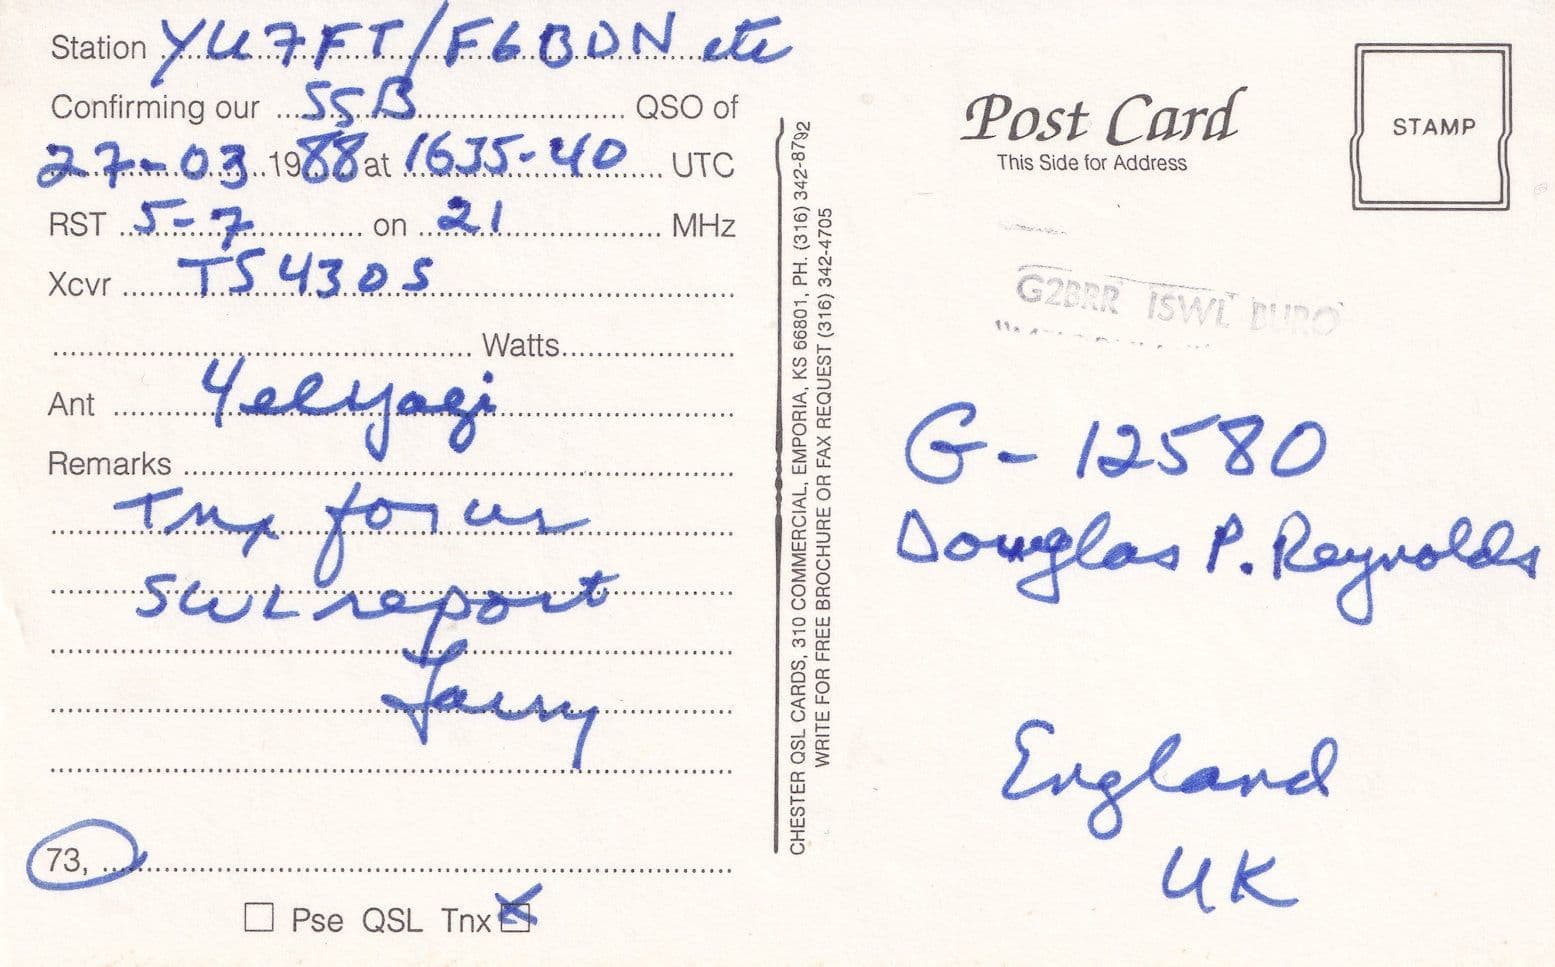 Station YU7FT/F6BDN etc
Confirming our SSB QSO of
27-03 1988 at 1635-40 UTC
RST 5-7 on 21 MHz
Xcvr TS430S
Watts
Ant 4el yagi
Remarks
Tnx for ur
SWL report
Larry
73,
Pse QSL Tnx
CHESTER QSL CARDS, 310 COMMERCIAL, EMPORIA, KS 66801, PH. (316) 342-8792
WRITE FOR FREE BROCHURE OR FAX REQUEST (316) 342-4705
Post Card
This Side for Address
STAMP
G2BRR ISWL BURO
G-12580
Douglas P. Reynolds
England
UK